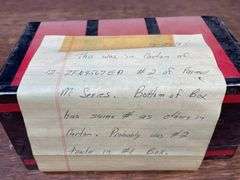 This was in Carton of
# 2 of
M Series. Bottom of Box
has same # as others in
Carton. Probably was #2
in #1 Box.